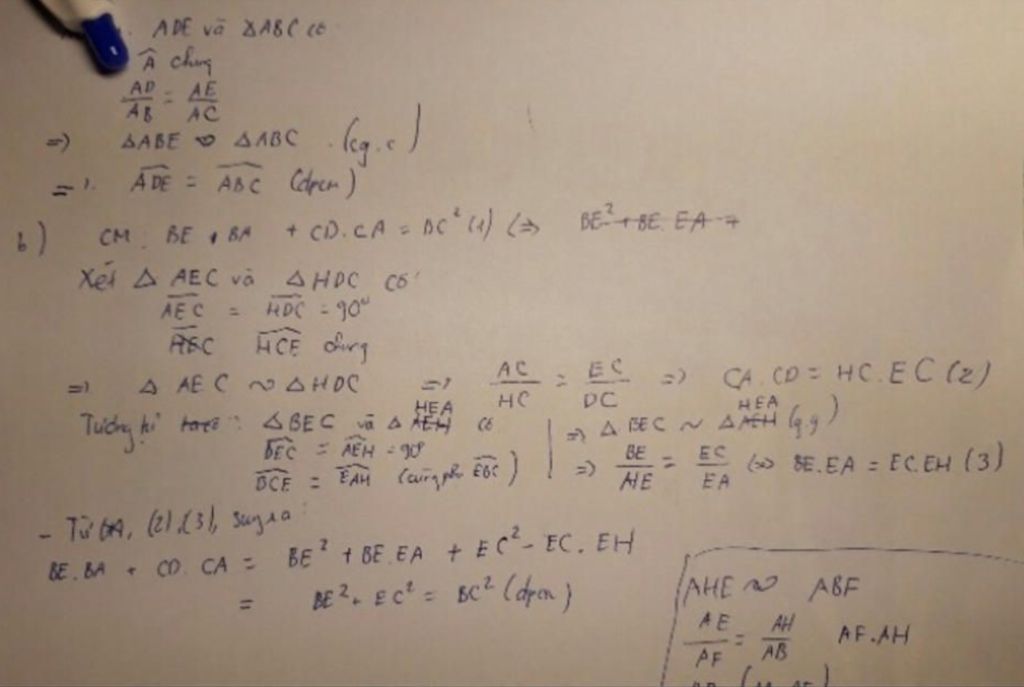 ADE và ΔABC có
Â chung
AD/AB = AE/AC
=> ΔABE ∽ ΔABC (cg.c)
=> ADE = ABC (đpcm)
b) CM: BE.BA + CD.CA = BC² (1) <=> BE² + BE.EA +
Xét Δ AEC và Δ HDC có
AEC = HDC = 90°
HEC HCE chung
=> Δ AEC ~ Δ HDC => AC/HC = EC/DC => CA.CD = HC.EC (2)
Tương tự: ΔBEC và Δ AEH HEA có
BEC = AEH = 90°
BCE = EAH (cùng phụ EBC)
=> Δ BEC ~ Δ AEH HEA (g.g)
=> BE/HE = EC/EA <=> BE.EA = EC.EH (3)
- Từ (2), (3), suy ra:
BE.BA + CD.CA = BE² + BE.EA + EC² - EC.EH
= BE² + EC² = BC² (đpcm)
AHE ∽ ABF
AE/AF = AH/AB AF.AH